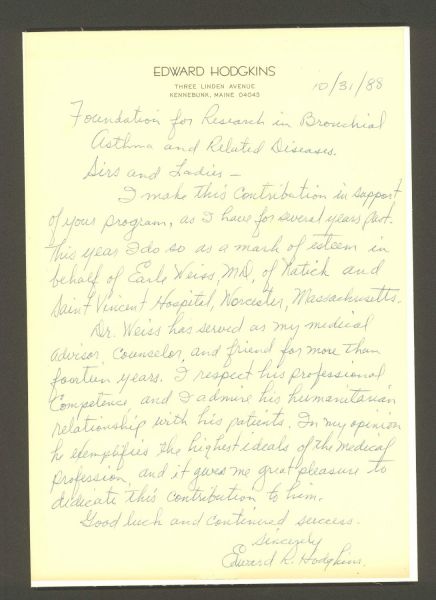 EDWARD HODGKINS
THREE LINDEN AVENUE
KENNEBUNK, MAINE 04043
10/31/88
Foundation for Research in Bronchial
Asthma and Related Diseases.
Sirs and Ladies —
I make this contribution in support
of your program, as I have for several years past.
This year I do so as a mark of esteem in
behalf of Earle Weiss, MD, of Natick and
Saint Vincent Hospital, Worcester, Massachusetts.
Dr. Weiss has served as my medical
advisor, counselor, and friend for more than
fourteen years. I respect his professional
competence and I admire his humanitarian
relationship with his patients. In my opinion
he exemplifies the highest ideals of the medical
profession, and it gives me great pleasure to
dedicate this contribution to him.
Good luck and continued success.
Sincerely
Edward R. Hodgkins.